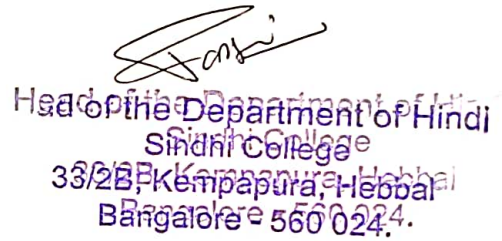 Head of the Department of Hindi
Sindhi College
33/2B, Kempapura, Hebbal
Bangalore - 560 024.